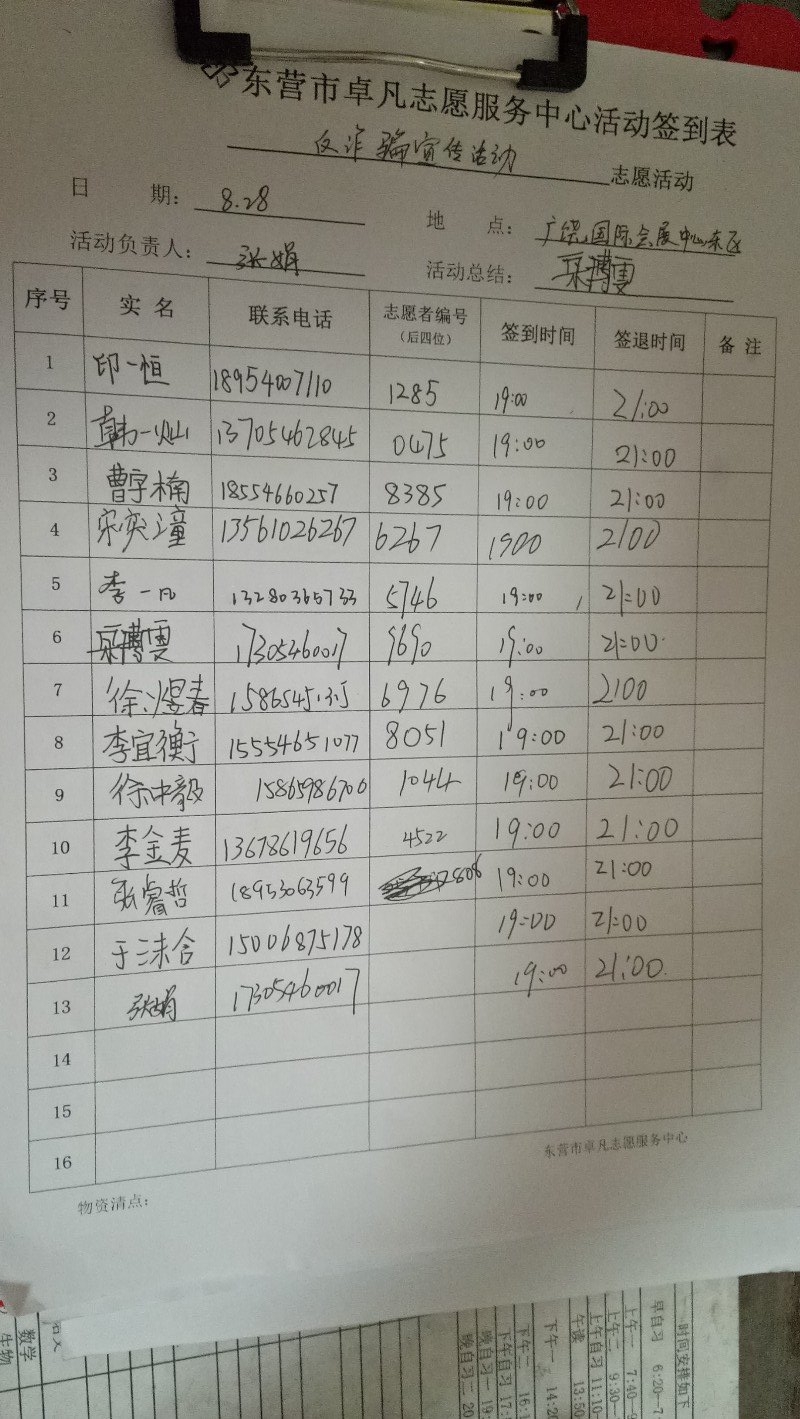 东营市卓凡志愿服务中心活动签到表
反诈骗宣传活动 志愿活动
日 期: 8.28 地 点: 广饶国际会展中心东区
活动负责人: 张娟 活动总结:
序号 实名 联系电话 志愿者编号(后四位) 签到时间 签退时间 备注
1 印一恒 18954007110 1285 19:00 21:00
2 韩一灿 13705462845 0475 19:00 21:00
3 曹字楠 18554660257 8385 19:00 21:00
4 宋奕潼 13561026267 6267 1900 2100
5 李一凡 13280365733 5746 19:00 21:00
6 17305460017 9690 19:00 21:00
7 徐煜春 6976 19:00 2100
8 李宜衡 15554651077 8051 19:00 21:00
9 徐中毅 15865986700 1044 19:00 21:00
10 李金麦 13678619656 4522 19:00 21:00
11 张睿哲 18953063599 19:00 21:00
12 于三未合 15006875178 19:00 21:00
13 张娟 17305460017 19:00 21:00
14
15
16
东营市卓凡志愿服务中心
物资清点:
时间安排如下
早自习 6:20-7
上午一 7:40-9
上午二 9:30-
上午自习 11:10-
午读 13:50
下午一 14:20
下午二 16:1
下午自习 17:
晚自习一 19:
晚自习二 20
数学
生物